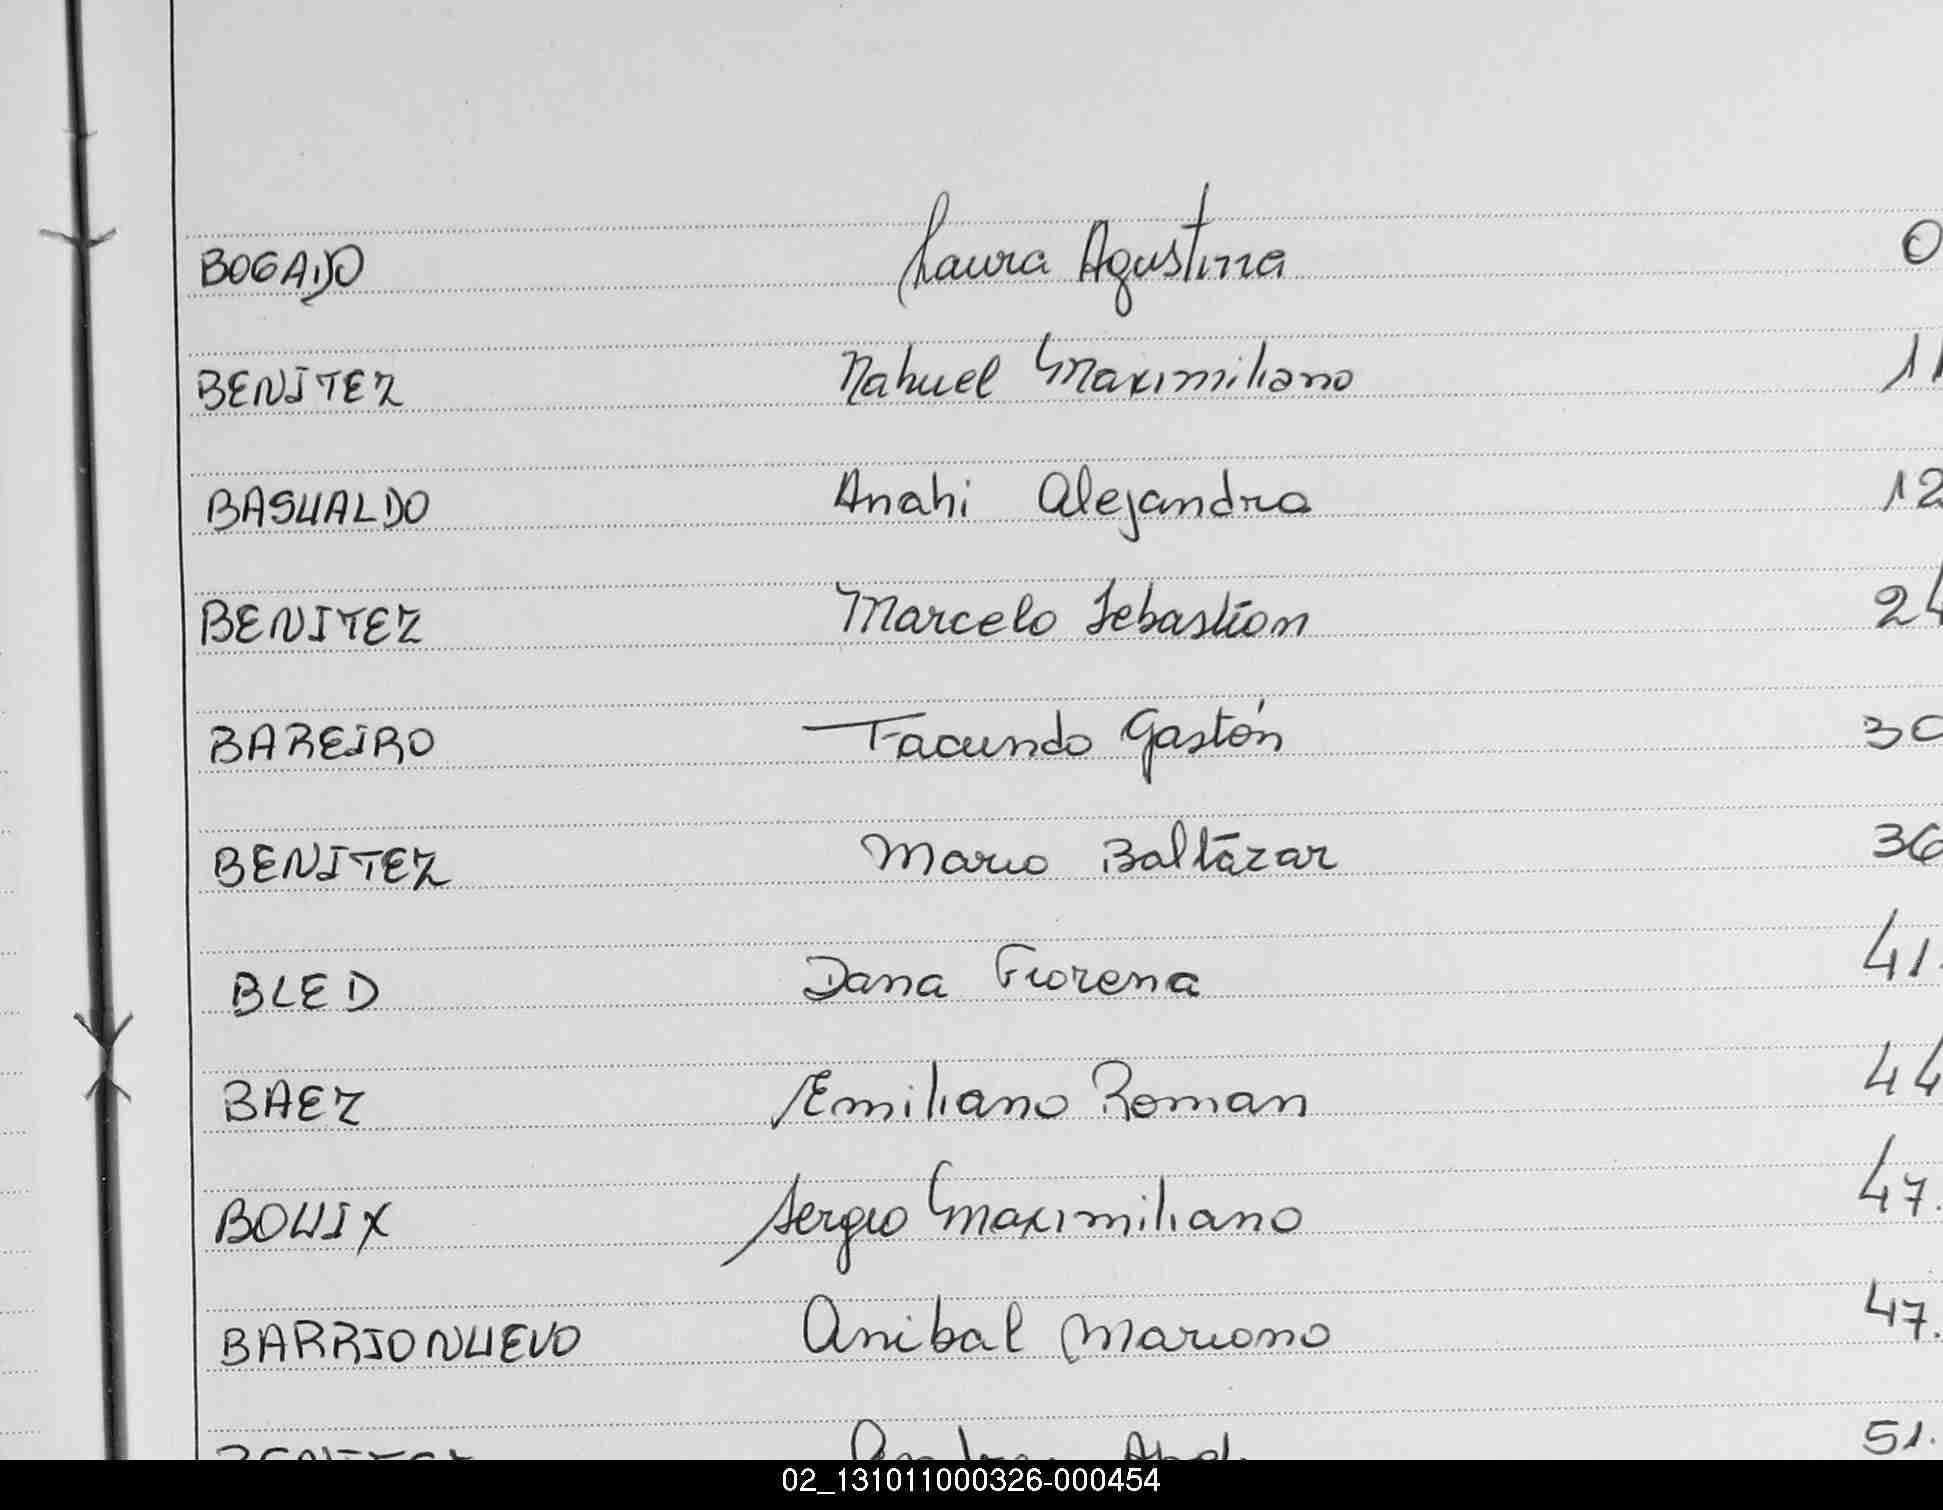 BOGADO Laura Agustina 0
BENITEZ Nahuel Maximiliano 11
BASUALDO Anahi Alejandra 12
BENITEZ Marcelo Sebastián 24
BAREIRO Facundo Gastón 30
BENITEZ Mario Baltázar 36
BLED Dana Fiorena 41.
BAEZ Emiliano Roman 44
BOUIX Sergio Maximiliano 47.
BARRIONUEVO Anibal Mariano 47.
BENITEZ 51.
02_131011000326-000454